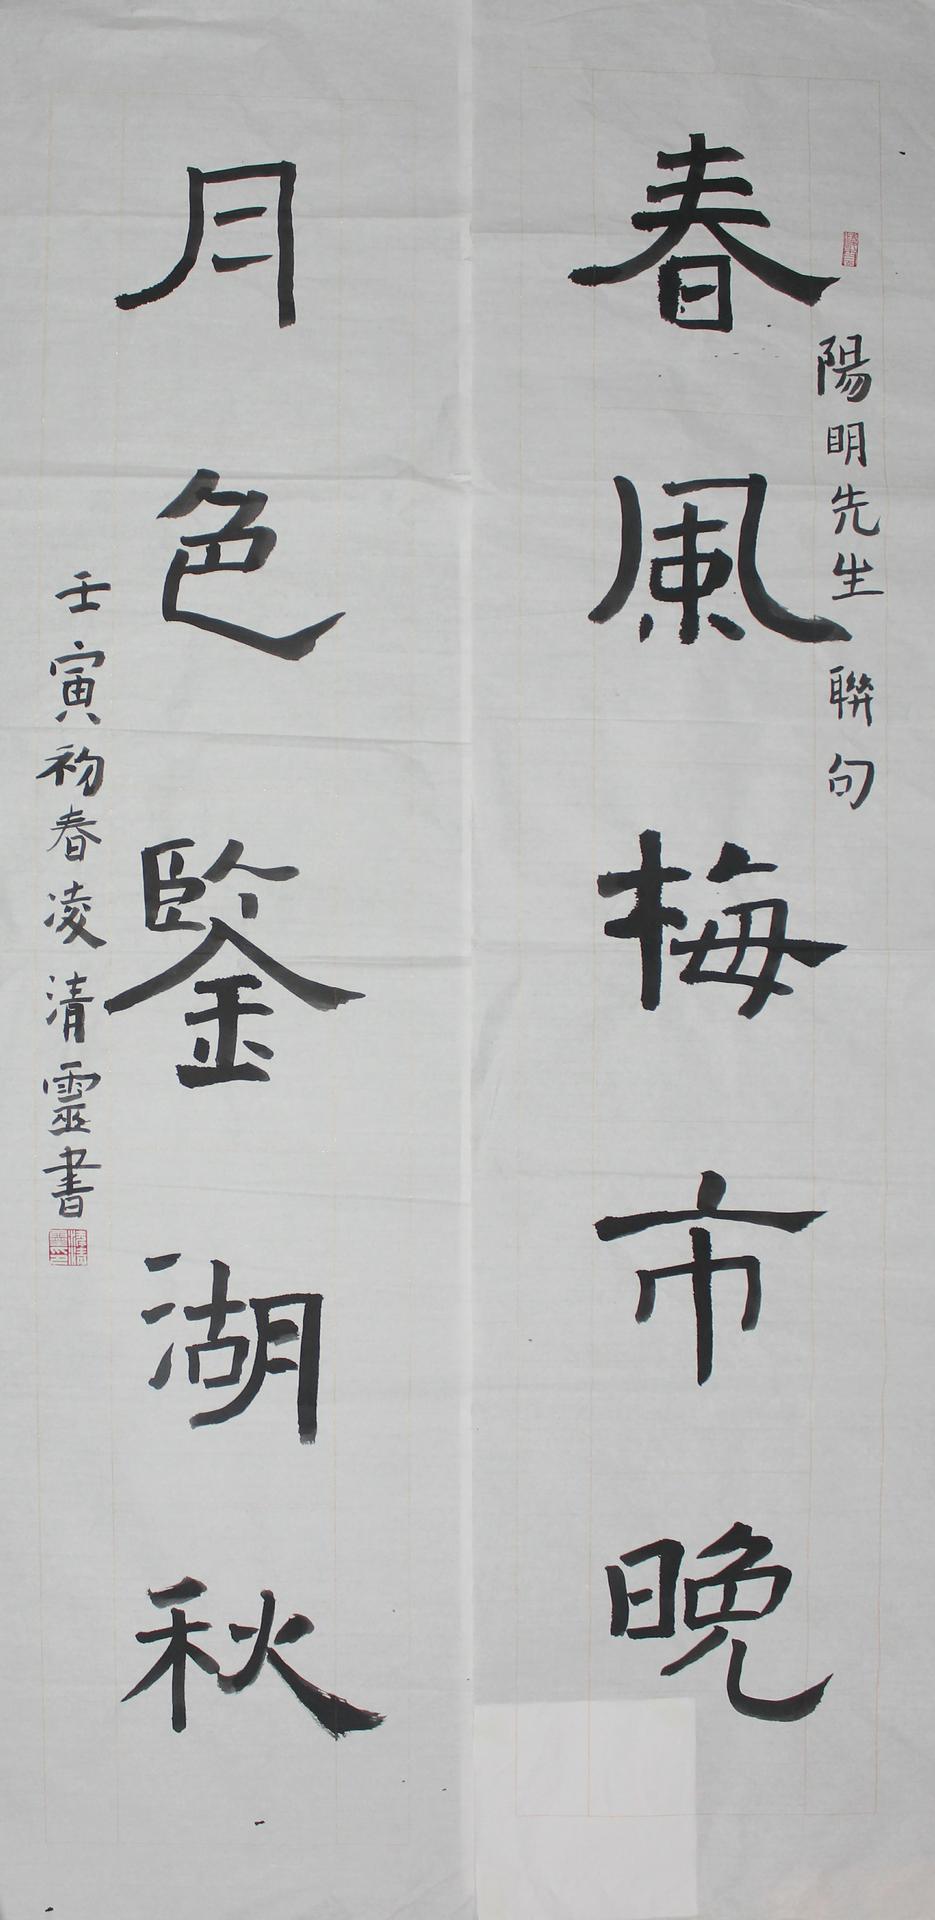 春風梅市晚
陽明先生聯句
月色鑒湖秋
壬寅初春凌清靈書